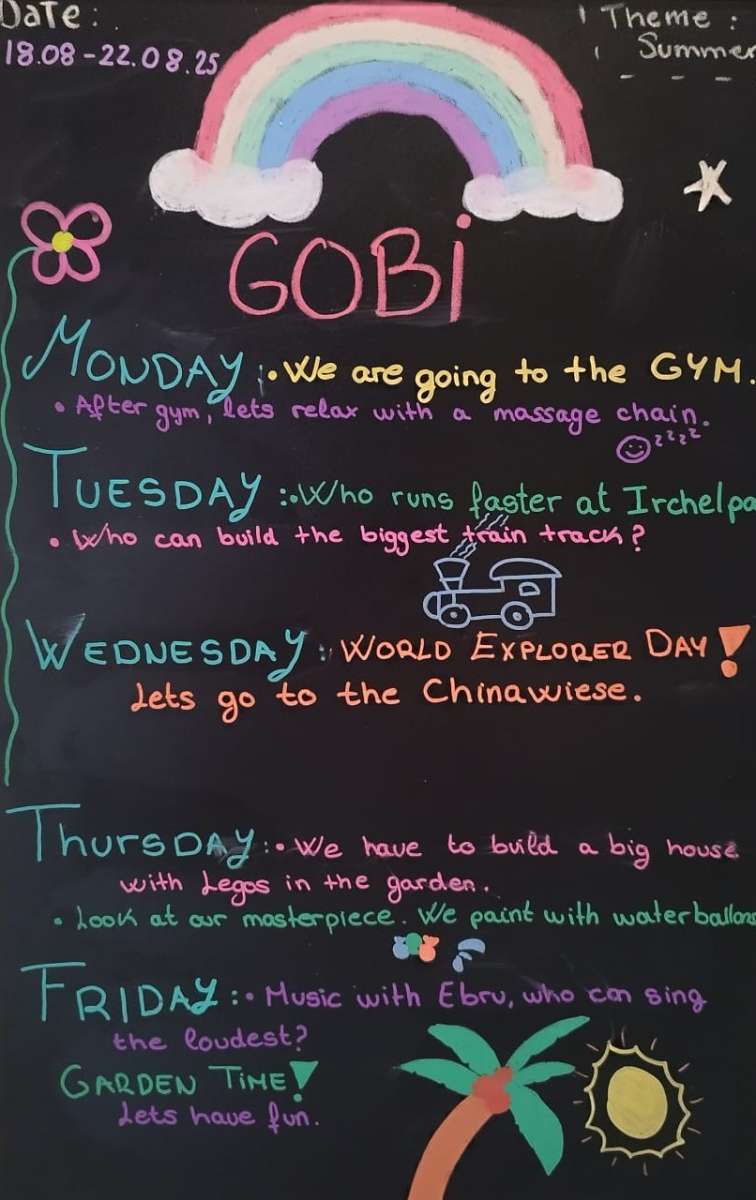 Date:
18.08-22.08.25
Theme:
Summer
GOBi
MONDAY: • We are going to the GYM.
• After gym, lets relax with a massage chain.
zzzz
TUESDAY: • Who runs faster at Irchelpa
• Who can build the biggest train track?
WEDNESDAY: WORLD EXPLORER DAY!
Lets go to the Chinawiese.
THURSDAY: • We have to build a big house
with Legos in the garden.
• Look at our masterpiece. We paint with waterballons
FRIDAY: • Music with Ebru, who can sing
the loudest?
GARDEN TIME!
Lets have fun.